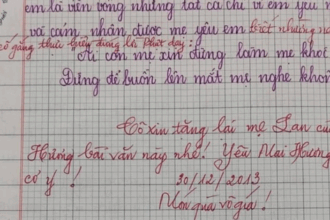 em là viển vông nhưng tất cả chỉ vì em yêu m
và cảm nhận được mẹ yêu em biết nhường n
cố gắng thực hiện đúng lời Bác dạy:
Ai còn mẹ xin đừng làm mẹ khó
Đừng để buồn lên mắt mẹ nghe khôn
Cô xin tặng lại mẹ Lan củ
Hương bài văn này nhé! Yêu Mai Hương
cô ý!
30/12/2013
Món quà vô giá!